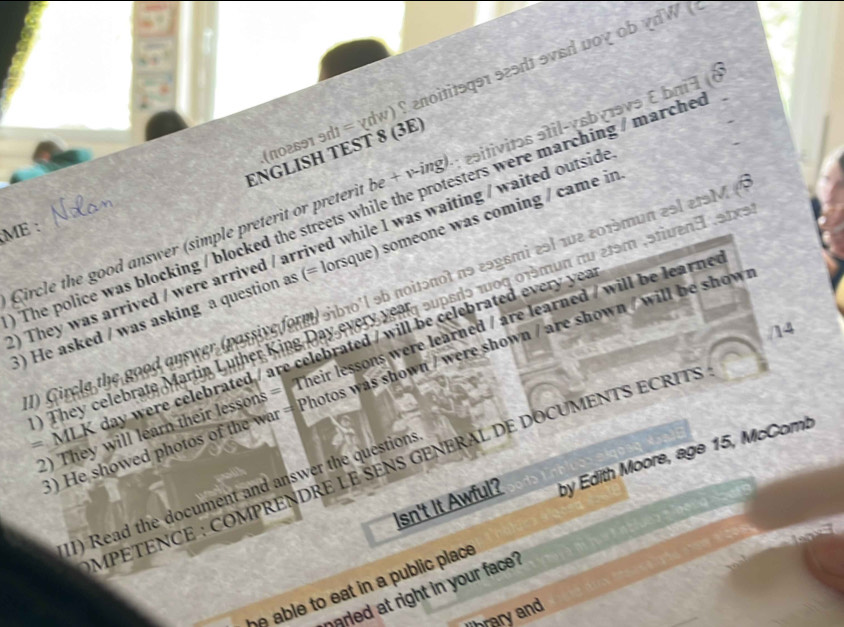 ENGLISH TEST 8 (3E)
ME : Nolan
) Circle the good answer (simple preterit or preterit be + v-ing).
1) The police was blocking / blocked the streets while the protesters were marching / marched
2) They was arrived / were arrived / arrived while I was waiting / waited outside.
3) He asked / was asking a question as (= lorsque) someone was coming / came in.
II) Circle the good answer (passive form)
1) They celebrate Martin Luther King Day every year
= MLK day were celebrated / are celebrated / will be celebrated every year
2) They will learn their lessons = Their lessons were learned / are learned / will be learned
3) He showed photos of the war = Photos was shown / were shown / are shown / will be shown
III) Read the document and answer the questions.
OMPETENCE : COMPRENDRE LE SENS GENERAL DE DOCUMENTS ECRITS : /14
Isn't It Awful?
by Edith Moore, age 15, McComb
be able to eat in a public place
at right in your face?
and